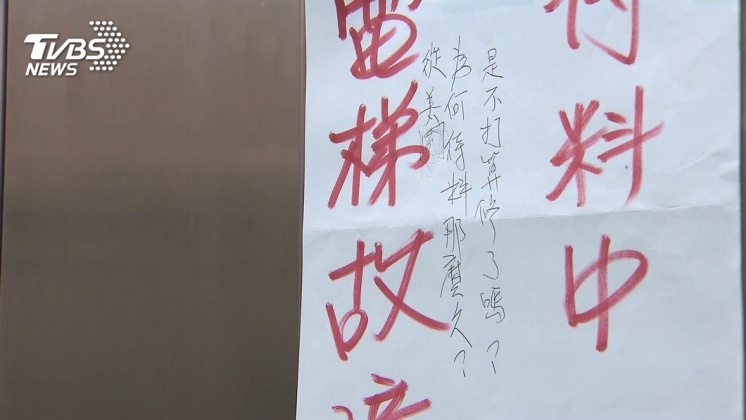 TVBS
NEWS
待料中
是不打算修了嗎？
為何待料那麼久？
從美國
電梯故障